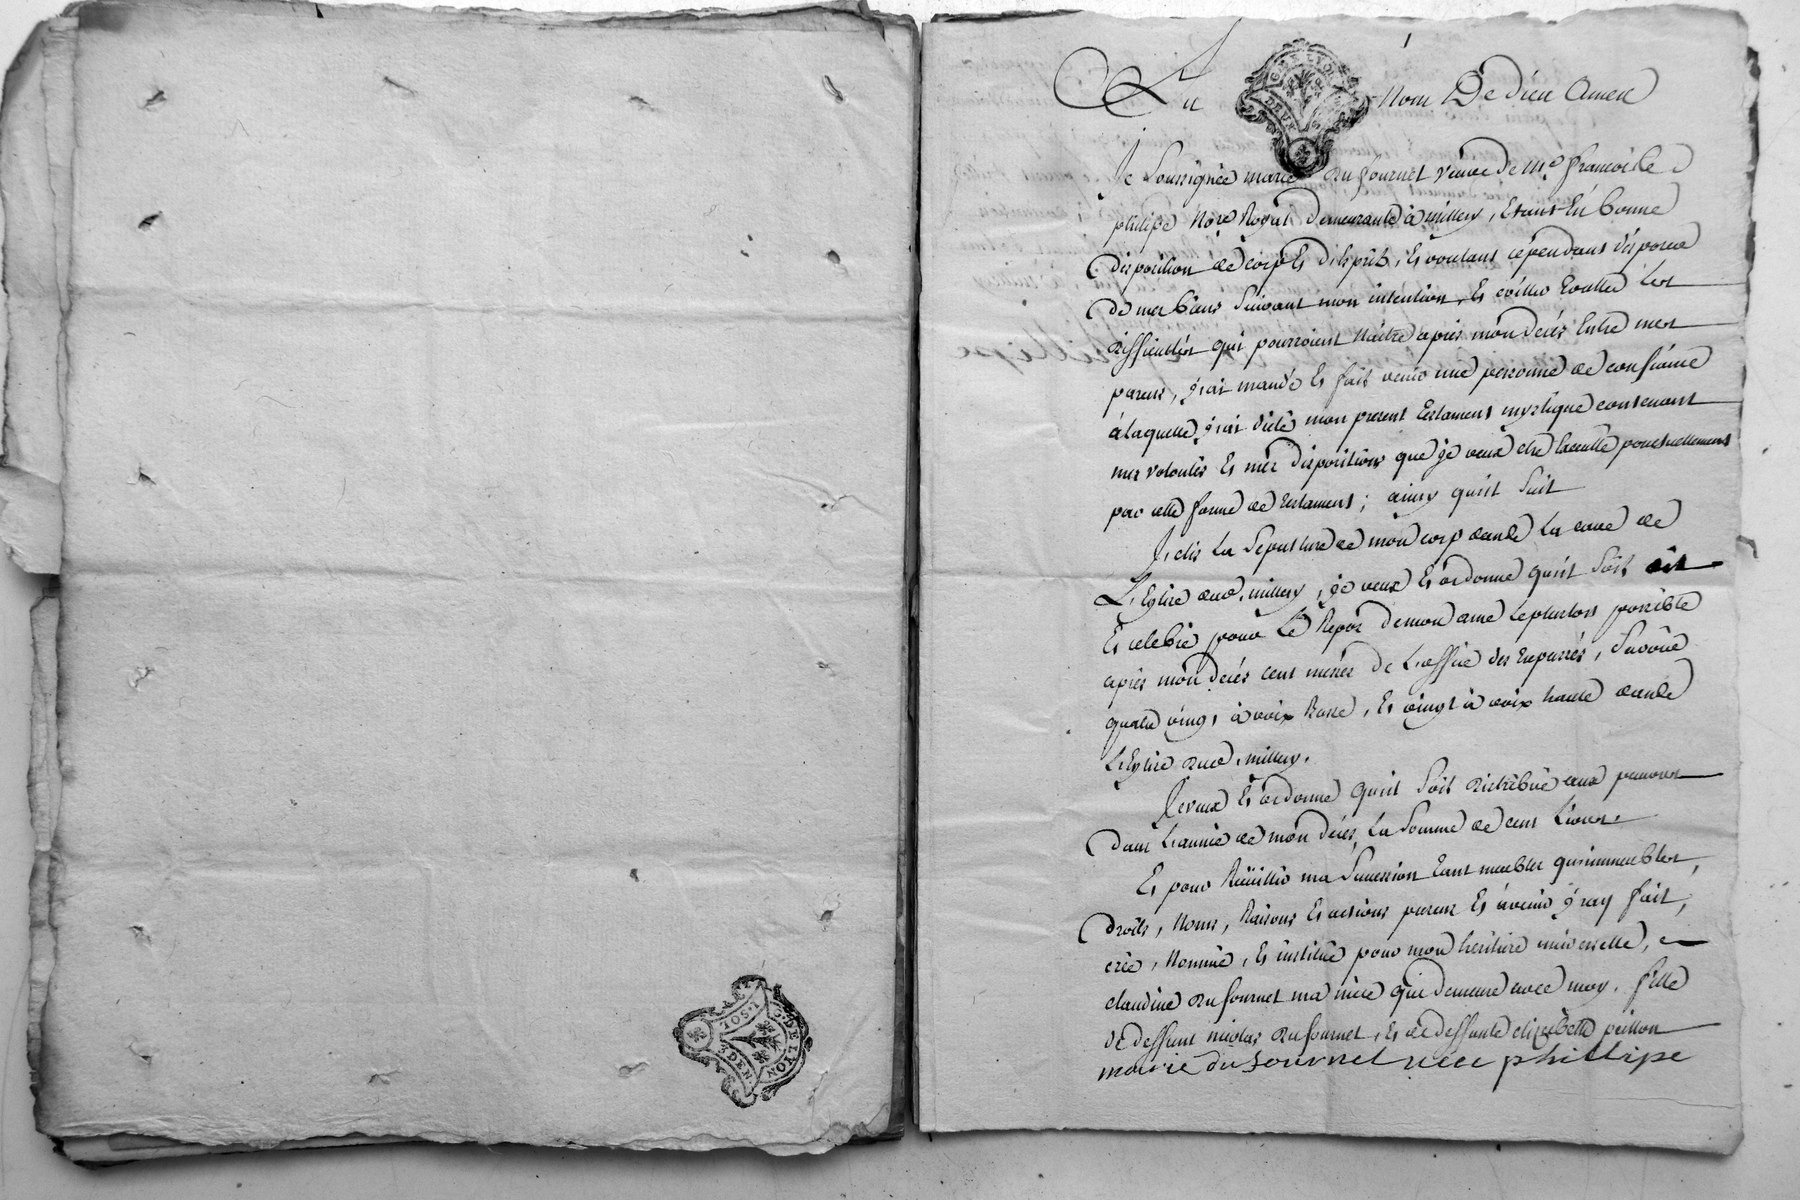 Au Nom De dieu Amen
Je Soussignée marie Dufournet veuve de Mr. francois le
philipe No.re Royal demeurante à millery, Etant En bonne
disposition de corp Et d'Esprit, Et voulant cépendant disposer
de mes biens suivant mon intention, Et éviter toutes Les
difficultés qui pourroient Naitre après mon decés Entre mes
parens, j'ai mandé Et fait venir une personne de confiance
à laquelle j'ai dicté mon present testament mystique contenant
mes volontés Et mes dispositions que je veux etre Executté ponctuellement
par cette forme de testament ; ainsy qu'il suit
J'elis La Sepulture de mon corp dans La cave de
L'Eglise dud. millery, je veux Et ordonne qu'il soit dit
Et celebré pour Le Repos de mon ame Le plustost possible
après mon decés cent messes de L'office des trepassés, Savoir
quatre vingt à voix Basse, Et vingt à voix haute dans
L'Eglise dud. millery.
Je veux Et ordonne qu'il soit distribué aux pauvres
dans L'année de mon decés La somme de cent Livres.
Et pour Reüillir ma Succession tant meubles qu'immeubles,
droits, Noms, Raisons Et actions presens Et à venir j'ay fait,
créé, Nommé, Et institué pour mon heritiere universelle,
claudine Dufournet ma niéce qui demeure avec moy, fille
de deffunt nicolas Dufournet, Et de deffunte elizabette peillon
marie dufournet veve phillipe
G. DE LYON
DEUX S
G. DE LYON
SOL
DEN